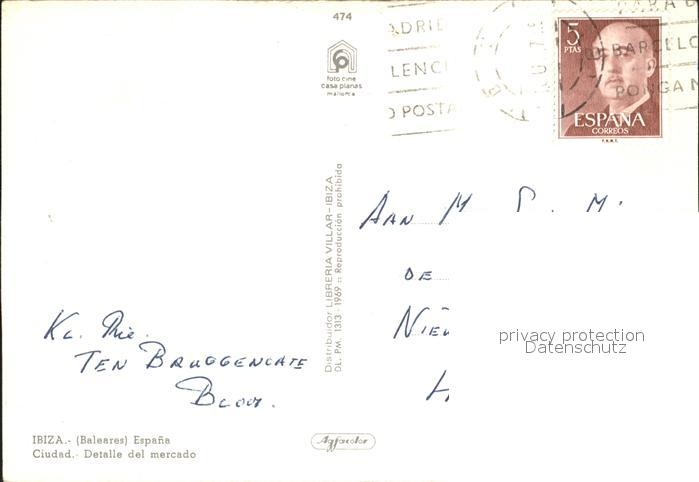 474
foto cine
casa planas
mallorca
ADRID
LENCI
O POSTA
PARA B
DE BARCELO
PONGA N
5
PTAS
ESPAÑA
CORREOS
F.N.M.T.
Distribuidor LIBRERIA VILLAR-IBIZA
DL. PM. 1313 - 1969 :: Reproducción prohibida
AAN M P. M.
DE
NIEU
privacy protection
Datenschutz
TEN BRUGGENCATE
IBIZA.- (Baleares) España
Ciudad.- Detalle del mercado
Agfacolor